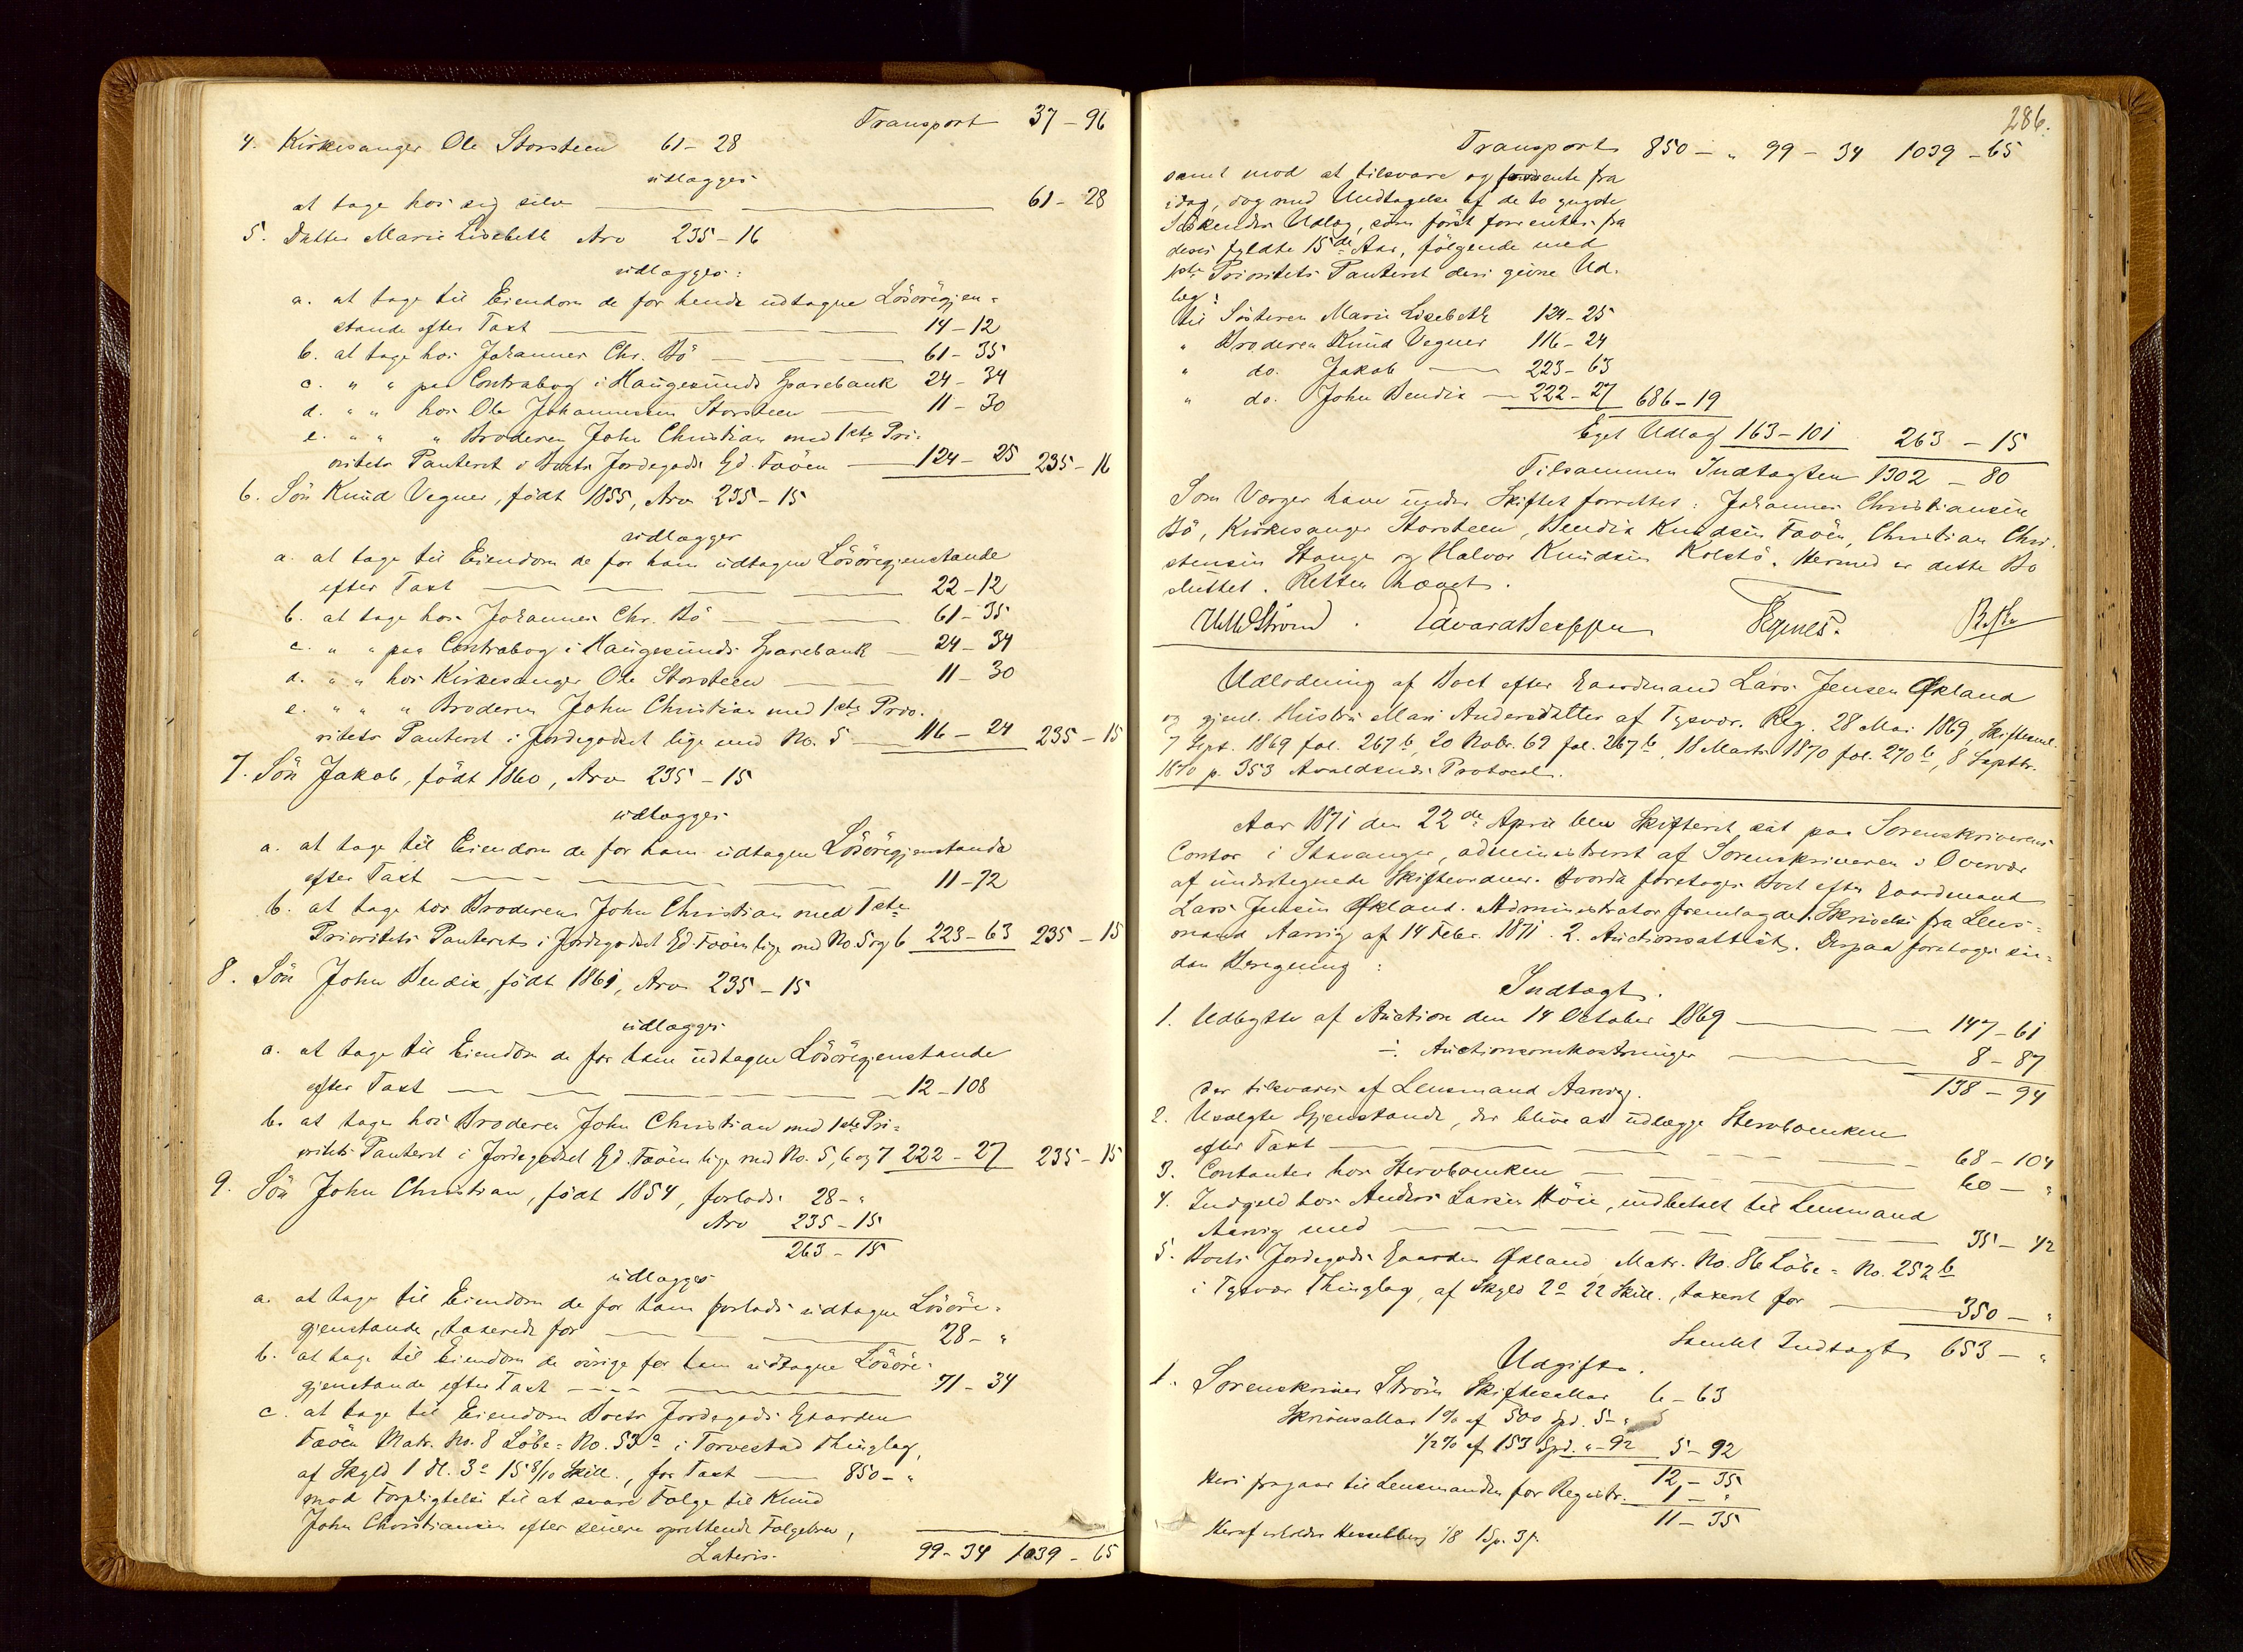 Transport 37 - 96
4. Kirkesanger Ole Storsteen 61 - 28
udlægges
at tage hos sig selv 61 - 28
5. Datter Marie Lisebeth Arv 235 - 16
udlægges:
a. at tage til Eiendom de for hende udtagne Lösöregjen-
stande efter Taxt 14 - 12
b. at tage hos Johannes Chr. Bö 61 - 35
c. " " paa Contrabog i Haugesunds Sparebank 24 - 34
d. " " hos Ole Johannessen Storsteen 11 - 30
e. " " " Broderen John Christian med 1ste Pri-
oritets Panteret i Boets Jordegods Gd. Fæöen 124 - 25 235 - 16
6. Sön Knud Vegner, födt 1855, Arv 235 - 15
udlægges
a. at tage til Eiendom de for ham udtagne Lösöregjenstande
efter Taxt 22 - 12
b. at tage hos Johannes Chr. Bö 61 - 35
c. " " paa Contrabog i Haugesunds Sparebank 24 - 34
d. " " hos Kirkesanger Ole Storsteen 11 - 30
e. " " " Broderen John Christian med 1ste Prio-
ritets Panteret i Jordegodset lige med No. 5 116 - 24 235 - 15
7. Sön Jakob, födt 1860, Arv 235 - 15
udlægges
a. at tage til Eiendom de for ham udtagne Lösöregjenstande
efter Taxt 11 - 72
b. at tage hos Broderen John Christian med 1ste
Prioritets Panteret i Jordegodset Gd. Fæöen lige med No. 5 og 6 223 - 63 235 - 15
8. Sön John Bendix, födt 1861, Arv 235 - 15
udlægges
a. at tage til Eiendom de for ham udtagne Lösöregjenstande
efter Taxt 12 - 108
b. at tage hos Broderen John Christian med 1ste Pri-
oritets Panteret i Jordegodset Gd. Fæöen lige med No. 5, 6 og 7 222 - 27 235 - 15
9. Sön John Christian, födt 1854, forlods 28 - "
Arv 235 - 15
263 - 15
udlægges
a. at tage til Eiendom de for ham forlods udtagne Lösöre-
gjenstande, taxerede for 28 - "
b. at tage til Eiendom de övrige for ham udtagne Lösöre-
gjenstande efter Taxt 71 - 34
c. at tage til Eiendom Boets Jordegods Gaarden
Fæöen Matr. No. 8 Löbe-No. 53a i Torvestad Thinglag,
af Skyld 1 Dl. 3o 15 8/10 Skill., for Taxt 850 - "
mod Forpligtelse til at svare Folge til Knud
John Christiansen efter senere oprettende Folgebrev,
Lateris. 99 - 34 1039 - 65
286.
Transport 850 - " 99 - 34 1039 - 65
samt mod at tilsvare og forrente fra
idag, dog med Undtagelse af de to yngste
Söskendes Udlæg, som först forrentes fra
deres fyldte 15de Aar, fölgende med
1ste Prioritets Panteret deri givne Ud-
læg:
til Sösteren Marie Lisebeth 124 - 25
" Broderen Knud Vegner 116 - 24
" do. Jakob 223 - 63
" do. John Bendix 222 - 27 686 - 19
Eget Udlæg 163 - 101 263 - 15
Tilsammen Indtægten 1302 - 80
Som Værger have under Skiftet forrettet: Johannes Christiansen
Bö, Kirkesanger Storsteen, Bendix Knudsen Fæöen, Christian Chri-
stensen Stange og Halvor Knudsen Kolstö. Hermed er dette Bo
sluttet. Retten hævet.
Ström. Edvard
Udlodning af Boet efter Gaardmand Lars Jensen Økland
og gjenl. Hustru Mari Andersdatter af Tysvær. Reg. 28 Mai 1869, Skiftesml.
7 Sept. 1869 fol. 267b, 20 Novbr. 69 fol. 267b, 18 Marts 1870 fol. 270b, 8 Septbr.
1870 p. 353 Avaldsnes Protocol.
Aar 1871 den 22de April blev Skifteret sat paa Sorenskriverens
Contor i Stavanger, administreret af Sorenskriveren i Overvær
af undertegnede Skiftevidner. Hvorda foretoges Boet efter Gaardmand
Lars Jensen Økland. Administrator fremlagde 1. Skrivelse fra Lens-
mand Aarvig af 14 Febr. 1871. 2. Auctionsattest. Derpaa foretoges saa-
dan Beregning:
Indtægt.
1. Udbytte af Auction den 14 October 1869 147 - 61
÷ Auctionsomkostninger 8 - 87
der tilsvares af Lensmand Aarvig. 138 - 94
2. Usolgte Gjenstande, der blive at udlægge Stervboenken
efter Taxt 68 - 104
3. Contanter hos Stervboenken 60 - "
4. Indgjeld hos Anders Larsen Höie, indbetalt til Lensmand
Aarvig med 35 - 42
5. Boets Jordegods Gaarden Økland Matr. No. 86 Löbe-No. 252b
i Tysvær Thinglag, af Skyld 2o 22 Skill., taxeret for 350 - "
Samlet Indtægt 653 - "
Udgift.
1. Sorenskriver Ström Skiftesallar 6 - 63
Skriversallar 1% af 500 Spd. 5 - "
1/2% af 153 Spd. " - 92 5 - 92
12 - 35
Heri fragaar til Lensmanden for Registr. 1 - "
11 - 35
Heraf erholder Hesselberg 1/8 1 Sp. 3